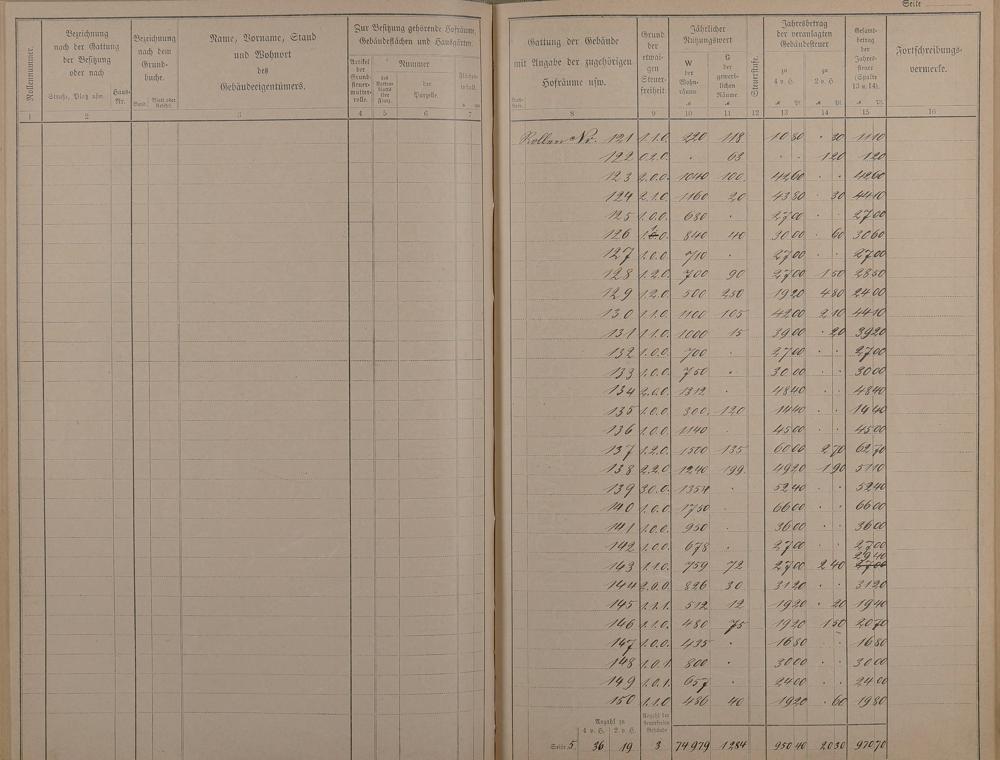 Seite
Rollennummer.
Bezeichnung
nach der Gattung
der Besitzung
oder nach
Straße, Platz usw.
Haus-
Nr.
Bezeichnung
nach dem
Grund-
buche.
Band.
Blatt oder
Artikel.
Name, Vorname, Stand
und Wohnort
des
Gebäudeeigentümers.
Zur Besitzung gehörende Hofräume,
Gebäudeflächen und Hausgärten.
Artikel
der
Grund-
steuer-
mutter-
rolle.
Nummer
der
Parzelle.
Flächen-
inhalt.
1 2 3 4 5 6 7
Gattung der Gebäude
mit Angabe der zugehörigen
Hofräume usw.
Grund
der
etwai-
gen
Steuer-
freiheit
Jährlicher
Nutzungswert
W
der
Wohn-
räume.
G
der
gewerb-
lichen
Räume.
Steuerstufe.
Jahresbetrag
der veranlagten
Gebäudesteuer
zu
4 v. H.
zu
2 v. H.
Gesamt-
betrag
der
Jahres-
steuer
(Spalte
13 u. 14).
Fortschreibungs-
vermerke.
8 9 10 11 12 13 14 15 16
Rollen Nr. 121 1.1.0. 220 118 10 80 · 30 11 10
122 0.2.0. · 63 · · 1 20 1 20
123 2.0.0. 1040 100 42 60 · · 42 60
124 2.1.0. 1160 20 43 80 · 30 44 10
125 1.0.0. 680 · 27 00 · · 27 00
126 840 40 30 00 · 60 30 60
127 1.0.0. 710 · 27 00 · · 27 00
128 1.2.0. 700 90 27 00 1 50 28 50
129 1.2.0. 500 250 19 20 4 80 24 00
130 1.1.0. 1100 105 42 00 2 10 44 10
131 1.1.0. 1000 15 39 00 · 20 39 20
132 1.0.0. 700 · 27 00 · · 27 00
133 1.0.0. 750 · 30 00 · · 30 00
134 2.0.0. 1312 · 48 40 · · 48 40
135 1.0.0. 300. 120 14 40 · · 14 40
136 1.0.0. 1140 · 45 00 · · 45 00
137 1.2.0. 1500 135 60 00 2 70 62 70
138 2.2.0. 1240 199 49 20 1 90 51 10
139 3.0.0. 1354 · 52 40 · · 52 40
140 1.0.0. 1750 · 66 00 · · 66 00
141 1.0.0. 950 · 36 00 · · 36 00
142 1.0.0. 678 · 27 00 · · 27 00
29 40
143 1.1.0. 759 72 27 00 2 40 27 00
144 2.0.0. 826 30 31 20 · · 31 20
145 1.1.1. 512 12 19 20 · 20 19 40
146 1.1.0. 480 75 19 20 1 50 20 70
147 1.0.0. 435 · 16 80 · · 16 80
148 1.0.1. 800 · 30 00 · · 30 00
149 1.0.1. 657 · 24 00 · · 24 00
150 1.1.0. 486 40 19 20 · 60 19 80
Anzahl zu
4 v. H. 2 v. H.
Anzahl der
steuerfreien
Gebäude
Seite 5. 36 19 3 1284 950 40 20 30 970 70